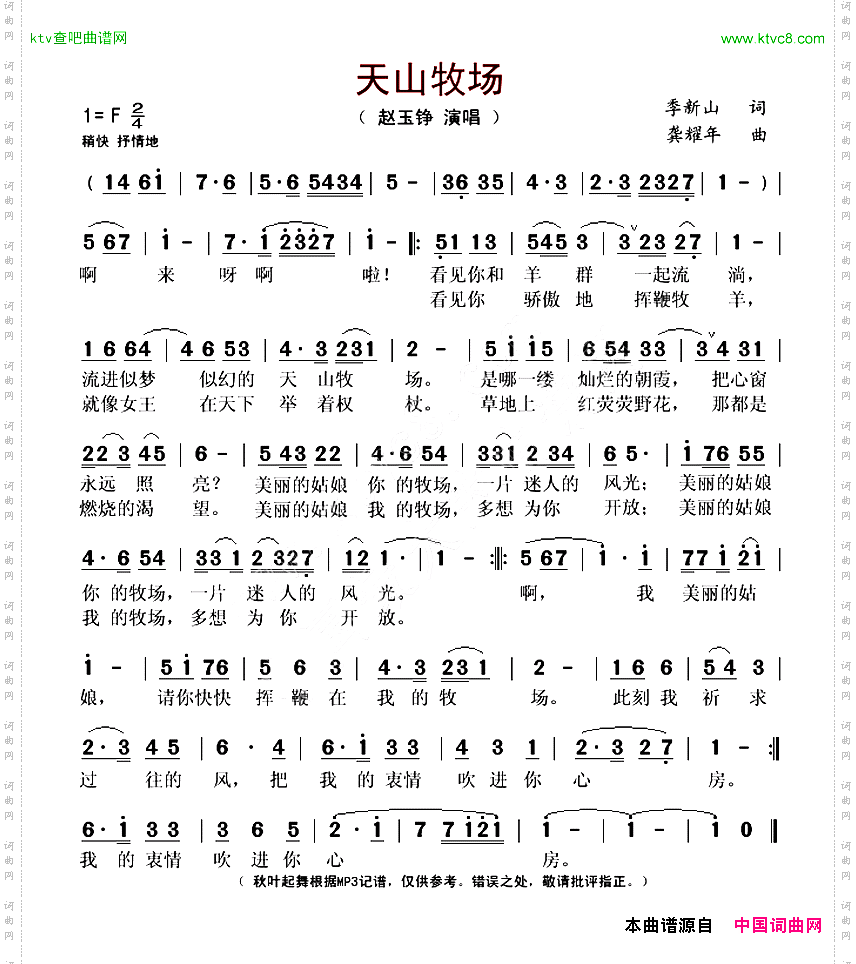 ktv查吧曲谱网 www.ktvc8.com
天山牧场
（ 赵玉铮 演唱 ）
1= F 2/4
稍快 抒情地
季新山 词
龚耀年 曲
( 14 61 | 7·6 | 5·6 5434 | 5 - | 36 35 | 4·3 | 2·3 2327 | 1 - ) |
5 67 | 1 - | 7·1 2327 | 1 - |: 51 13 | 545 3 | 3 23 27 | 1 - |
啊 来 呀啊 啦！ 看见你和 羊 群 一起流 淌，
看见你 骄傲 地 挥鞭牧 羊，
1 6 64 | 4 6 53 | 4·3 231 | 2 - | 51 15 | 6 54 33 | 3 4 31 |
流进似梦 似幻的 天 山牧 场。 是哪一缕 灿烂的朝霞， 把心窗
就像女王 在天下 举 着权 杖。 草地上 红荧荧野花， 那都是
22 3 45 | 6 - | 5 43 22 | 4·6 54 | 331 2 34 | 6 5· | 1 76 55 |
永远 照 亮？ 美丽的姑娘 你 的牧场，一片 迷人的 风光；美丽的姑娘
燃烧的渴 望。 美丽的姑娘 我 的牧场，多想 为你 开放；美丽的姑娘
4·6 54 | 33 1 2 327 | 12 1· | 1 - :|: 5 67 | 1·1 | 77 1 21 |
你 的牧场，一片 迷 人的 风 光。 啊， 我 美丽的姑
我 的牧场，多想 为 你 开 放。
1 - | 5 1 76 | 5 6 3 | 4·3 23 1 | 2 - | 1 6 6 | 54 3 |
娘， 请你快快 挥 鞭 在 我 的 牧 场。 此刻 我 祈 求
2·3 4 5 | 6 · 4 | 6·1 33 | 4 3 1 | 2·3 2 7 | 1 - :|
过 往的 风，把 我 的衷情 吹 进 你 心 房。
6·1 33 | 3 6 5 | 2·1 | 7 7 121 | 1 - | 1 - | 1 0 ‖
我 的衷情 吹 进 你 心 房。
（ 秋叶起舞根据MP3记谱，仅供参考。错误之处，敬请批评指正。）
本曲谱源自 中国词曲网